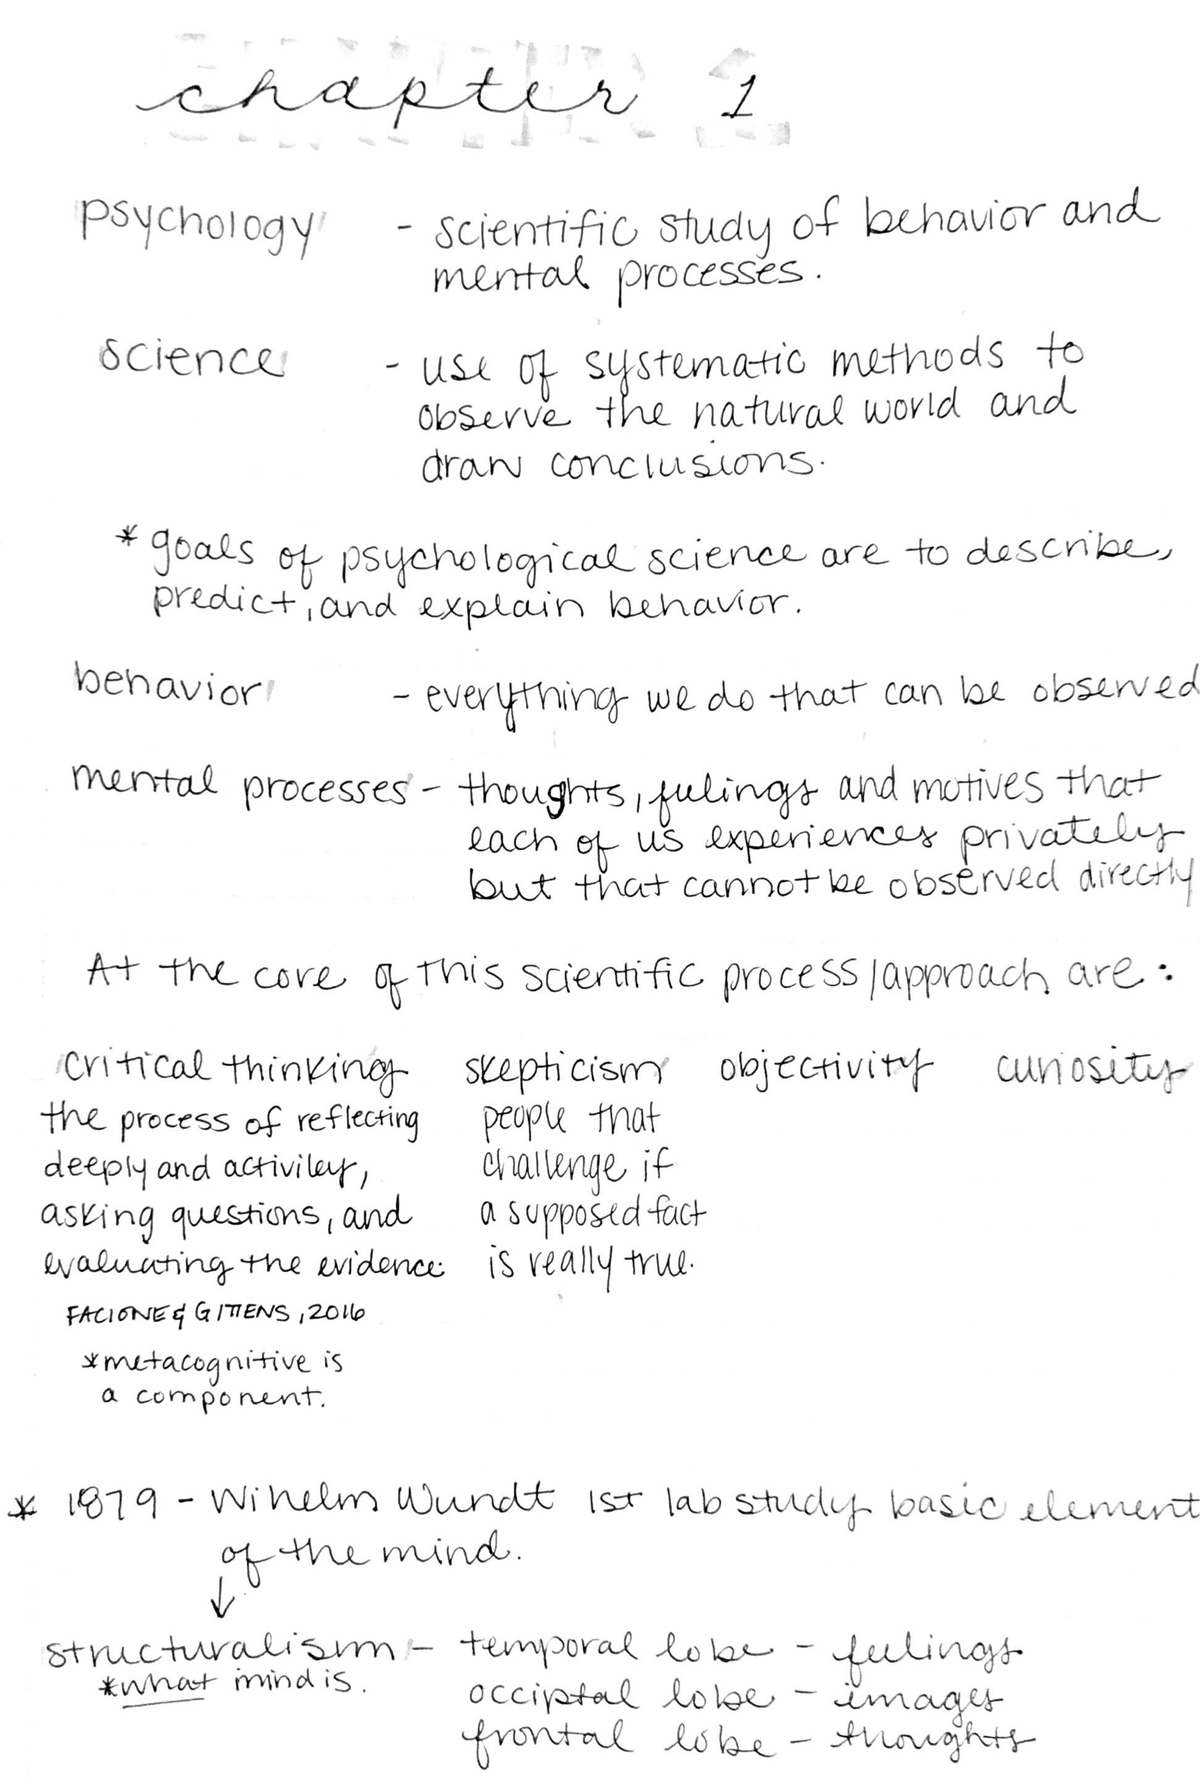 chapter 1
psychology - scientific study of behavior and
mental processes.
science - use of systematic methods to
observe the natural world and
draw conclusions.
* goals of psychological science are to describe,
predict, and explain behavior.
behavior - everything we do that can be observed
mental processes - thoughts, feelings and motives that
each of us experiences privately
but that cannot be observed directly
At the core of this scientific process/approach are:
critical thinking skepticism objectivity curiosity
the process of reflecting
deeply and activiley,
asking questions, and
evaluating the evidence.
FACIONE & GITTENS, 2016
*metacognitive is
a component.
people that
challenge if
a supposed fact
is really true.
* 1879 - Wihelm Wundt 1st lab study basic element
of the mind.
↓
structuralism - temporal lobe - feelings
*what mind is.
occiptal lobe - images
frontal lobe - thoughts